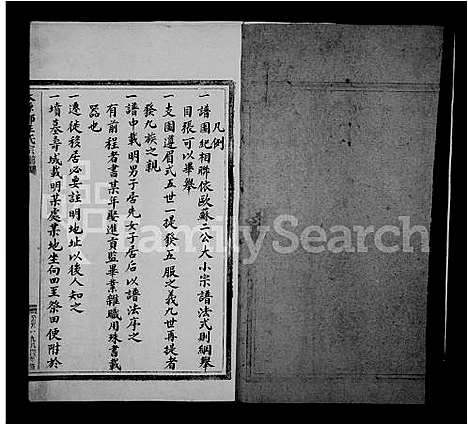 凡例
一譜圖紀相聯依歐蘇二公大小宗譜法式則綱舉
目張可以畢舉
一支圖遵眉式五世一提發五服之義九世再提者
發九族之親
一譜中載明男子居先女子居後以譜法序之
有前程者書某年娶進貢監畢業雜職用殊書載
名也
一遷徙移居必要註明地址以後人知之
一墳墓壽城載明某處某地坐向四至祭田便附於
FamilySearch